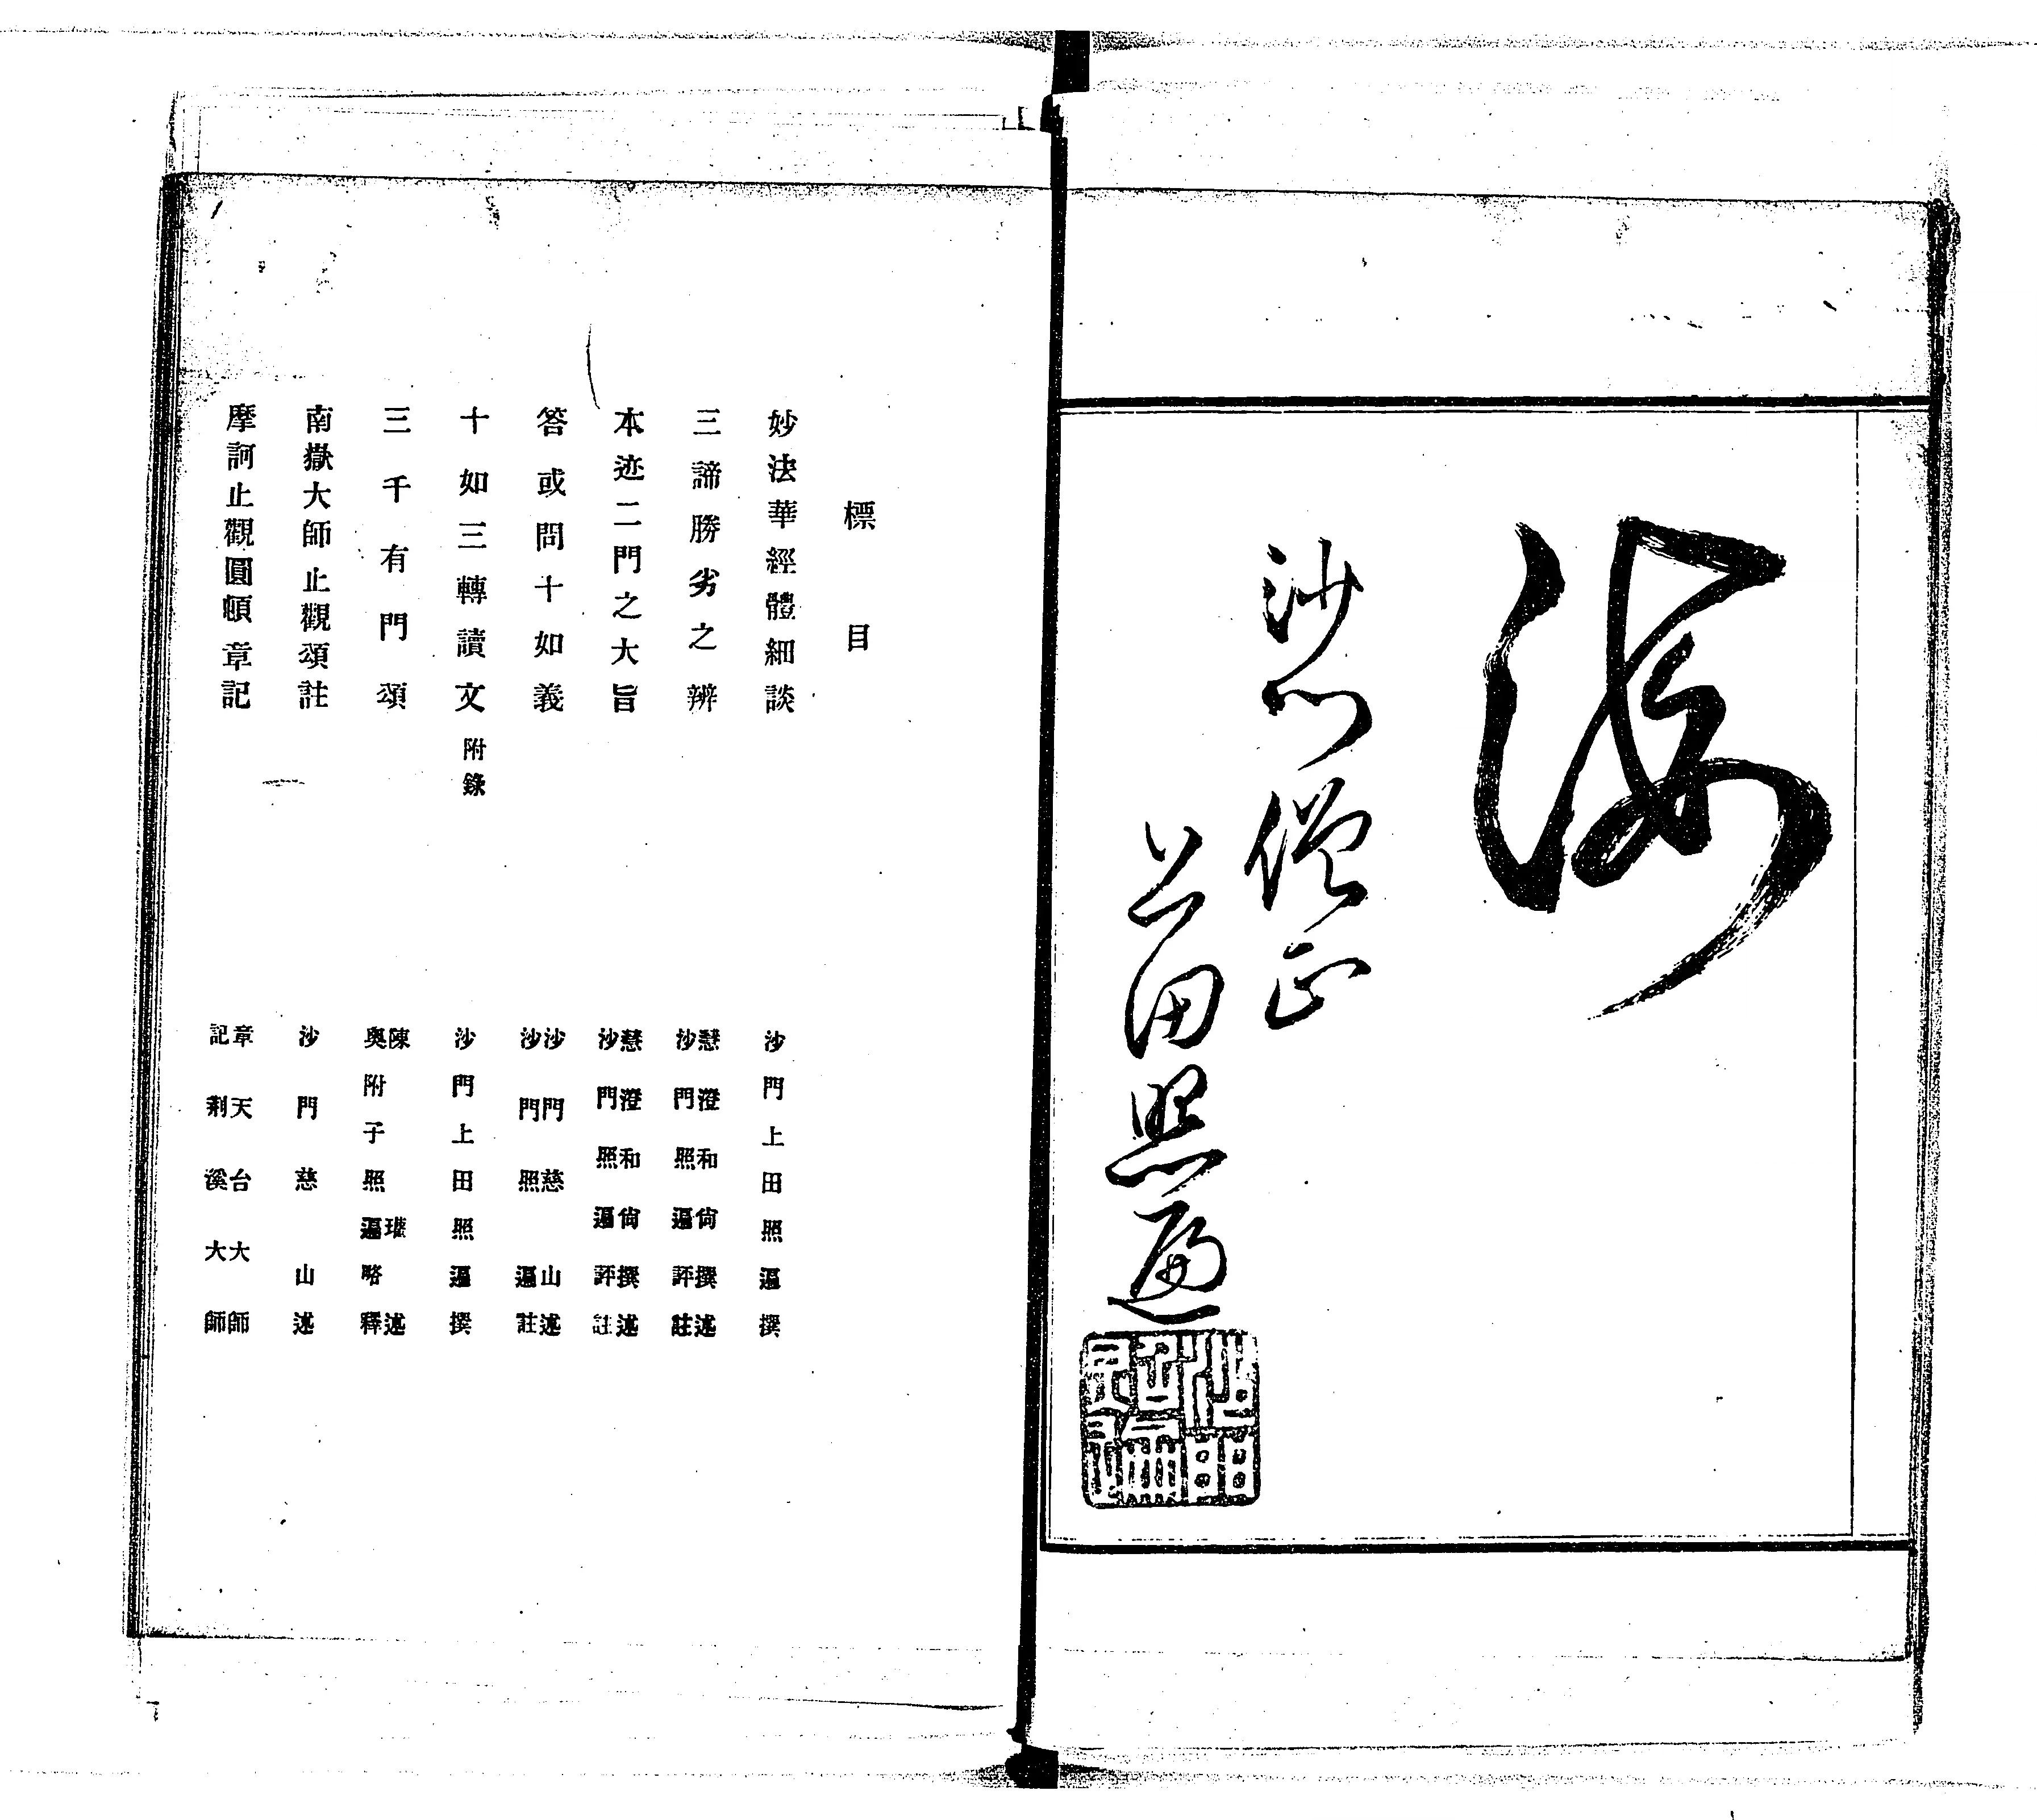 海
沙門僧正
上田照遍
標目
妙法華經體細談 沙門上田照遍撰
三諦勝劣之辨 慧澄和尙撰述
沙門照遍評註
本迹二門之大旨 慧澄和尙撰述
沙門照遍評註
答或問十如義 沙門慈山述
沙門照遍註
十如三轉讀文附錄 沙門上田照遍撰
三千有門頌 陳瓘述
奥附子照遍略釋
南嶽大師止觀頌註 沙門慈山述
摩訶止觀圓頓章記 章天台大師
記荆溪大師